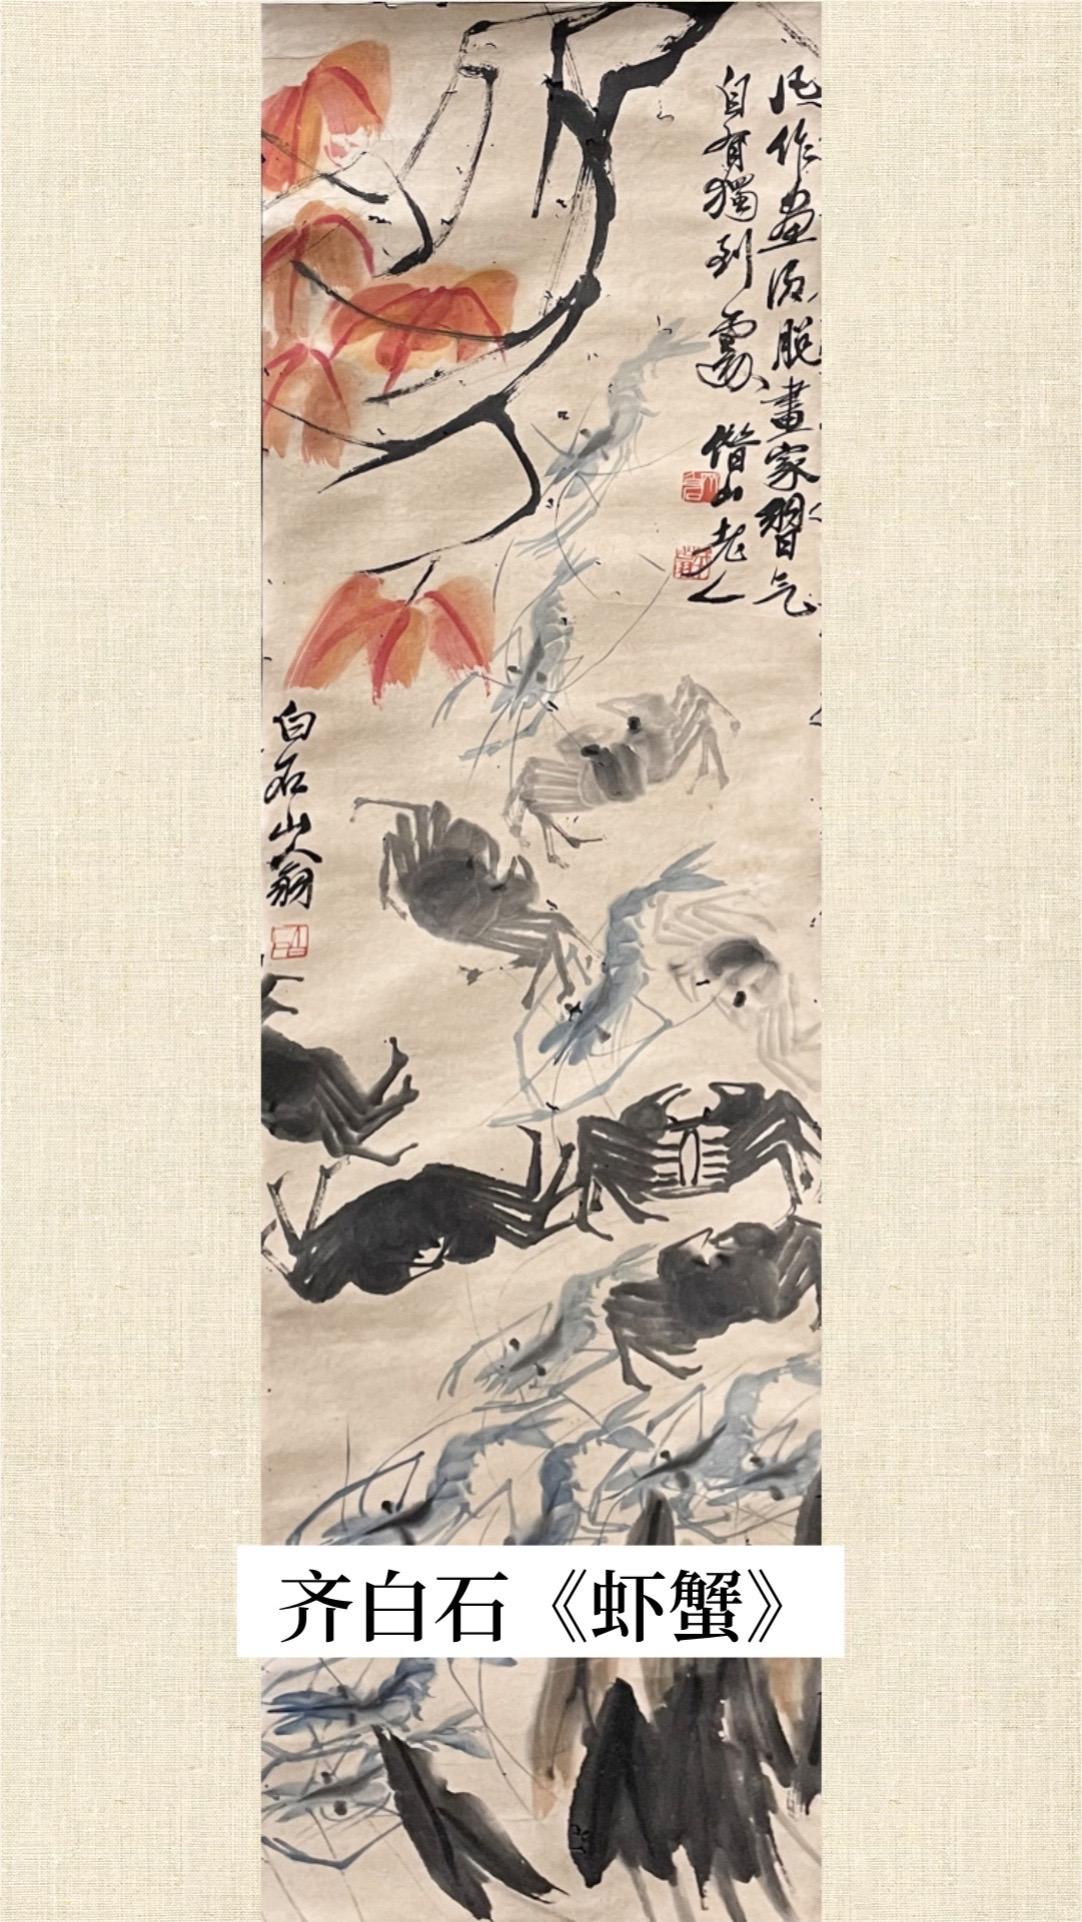 凡作画须脱畫家習气
自有獨到處
借山老人
白石山翁
齐白石《虾蟹》